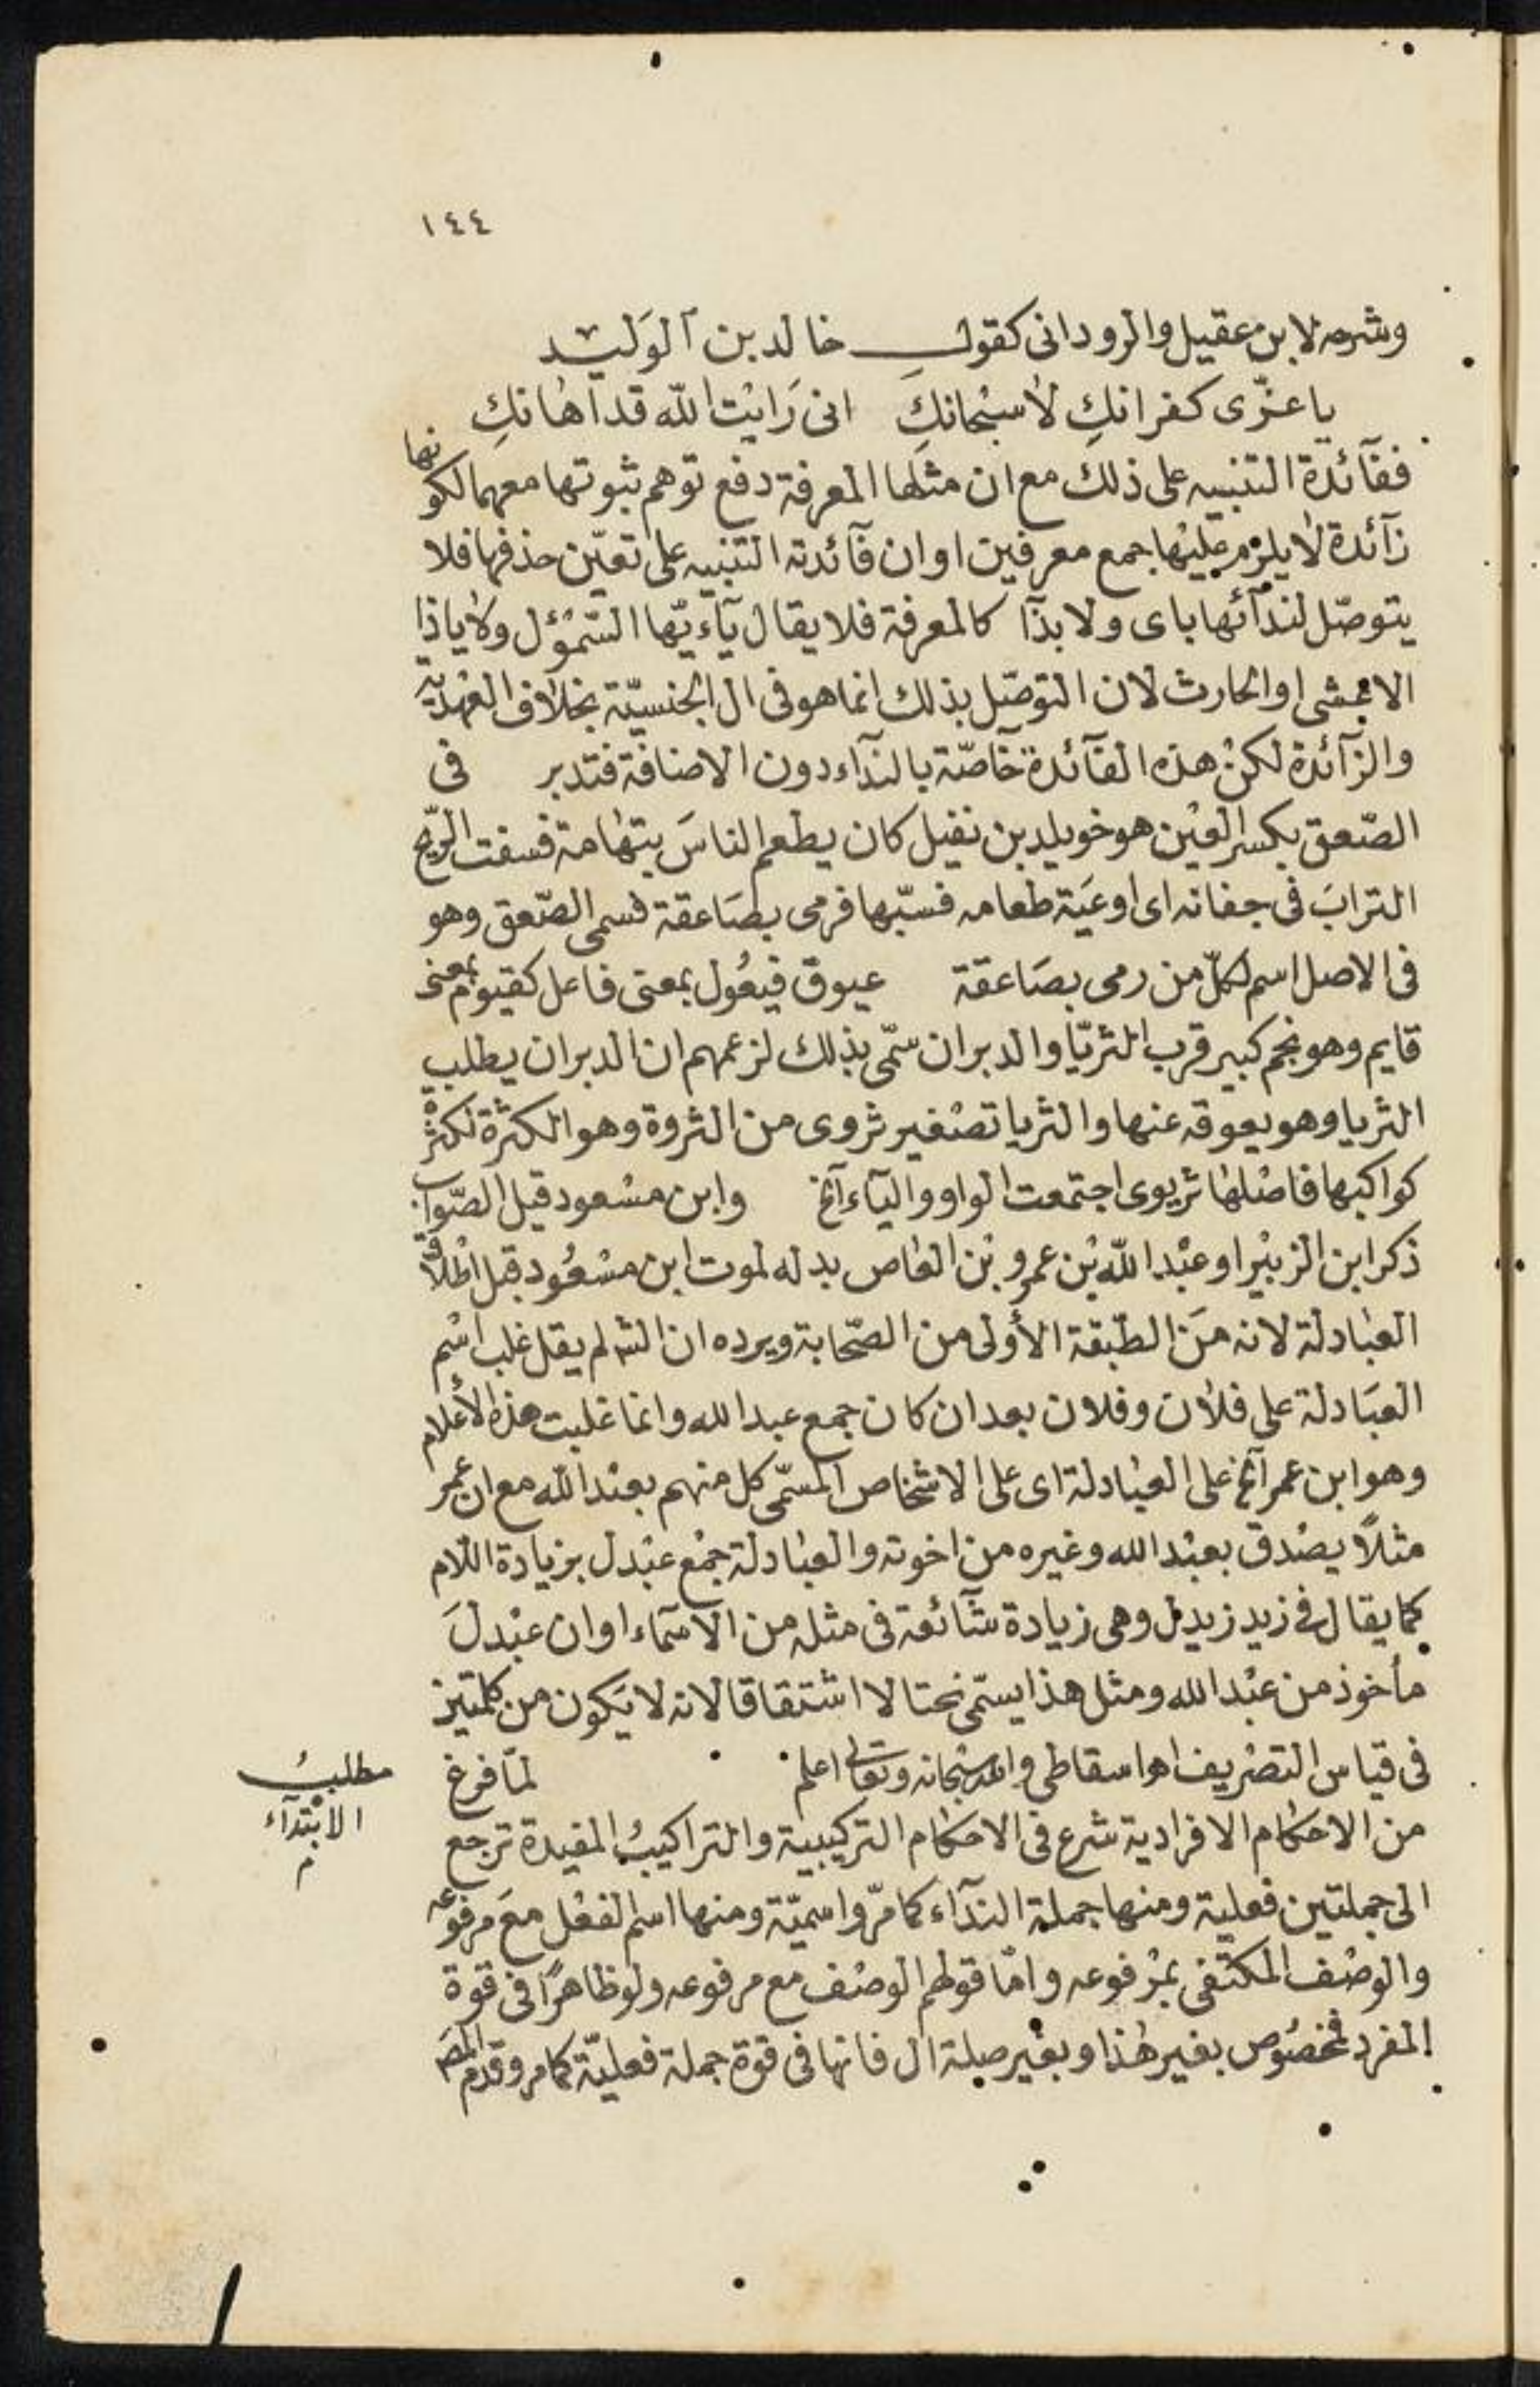 ١٤٤
وشرحه لابن عقيل والرودانى كقول خالد بن الوَليد
ياعزّى كفرانكِ لاسبْحانكِ انى رَايْت الله قد اهانكِ
ففائدة التنبيه على ذلك مع ان مثلها المعرفة دفع توهم ثبوتها معهما لكونها
زآئدة لايلزم عليْها جمع معرفين او ان فآئدته التنبيه على تعيّن حذفها فلا
يتوصّل لندآئها باى ولا بذا كالمعرفة فلا يقال يآءيّها السّموْؤل ولا ياذا
الاعشى او الحارث لان التوصّل بذلك انما هو فى ال الجنسيّة بخلاف العهديّة
والزآئدة لكنْ هذه الفآئدة خآصّة بالندآء دون الاضافة فتدبر فى
الصّعق بكسر العيْن هو خويلد بن نفيل كان يطعم الناسَ بتهامة فسفت الرّيح
الترابَ فى جفانه اى اوعيَة طعامه فسبّها فرمى بصَاعقة فسمى الصّعق وهو
فى الاصل اسم لكلّ من رمى بصَاعقة عيوق فيْعُول بمعنى فاعل كقيوم بمعنى
قايم وهو نجم كبير قرب الثريّا والدبران سمّى بذلك لزعمهم ان الدبران يطلب
الثريا وهو يعوقه عنها والثريا تصْغير ثروى من الثروة وهو الكثرة لكثرة
كواكبها فاصْلها ثريوى اجتمعت الواو واليآء آلخ وابن مسْعود قيل الصّواب
ذكر ابن الزبيْر او عبْد الله بْن عمرو بْن العاص بدله لموت ابن مسْعُود قبل اطْلاق
العبَادلة لانه مَن الطّبقة الأولى من الصّحابة ويرده ان الشـ لم يقل غلب اسْم
العبَادلة على فلان وفلان بعد ان كان جمع عبد الله وانما غلبت هذه الأعلام
وهو ابن عمر آلخ على العبَادلة اى على الاشخاص المسمّى كل منهم بعبْد الله مع ان عمر
مثلاً يصْدق بعبْد الله وغيره من اخوته والعبَادلة جمْع عبْدل بزيادة اللام
كما يقال فى زيد زيدل وهى زيادة شآئعة فى مثله من الآسمآء او ان عبْدلَ
مأخوذ من عبْد الله ومثل هذا يسمّى نحتا لا اشتقاقا لانه لا يَكون من كلمتين
فى قياس التصْريف اهـ اسقاطى والله سبْحانه وتعالى اعلم لمّا فرغ
مطلبُ
الابْتدآء
م
من الاحكام الافرادية شرع فى الاحكام التركيبية والتراكيبُ المفيدة ترجع
الى جملتين فعلية ومنها جملة الندآء كما مرّ واسميّة ومنها اسم الفعْل معَ مرفوعه
والوصْف المكتْفى بمرْفوعه وامّا قولهم الوصْف مع مرفوعه ولو ظاهراً فى قوة
المفرد فمخصُوص بغير هٰذا وبغيْر صلة ال فانها فى قوة جملة فعليّة كما مر وقدم المصَ